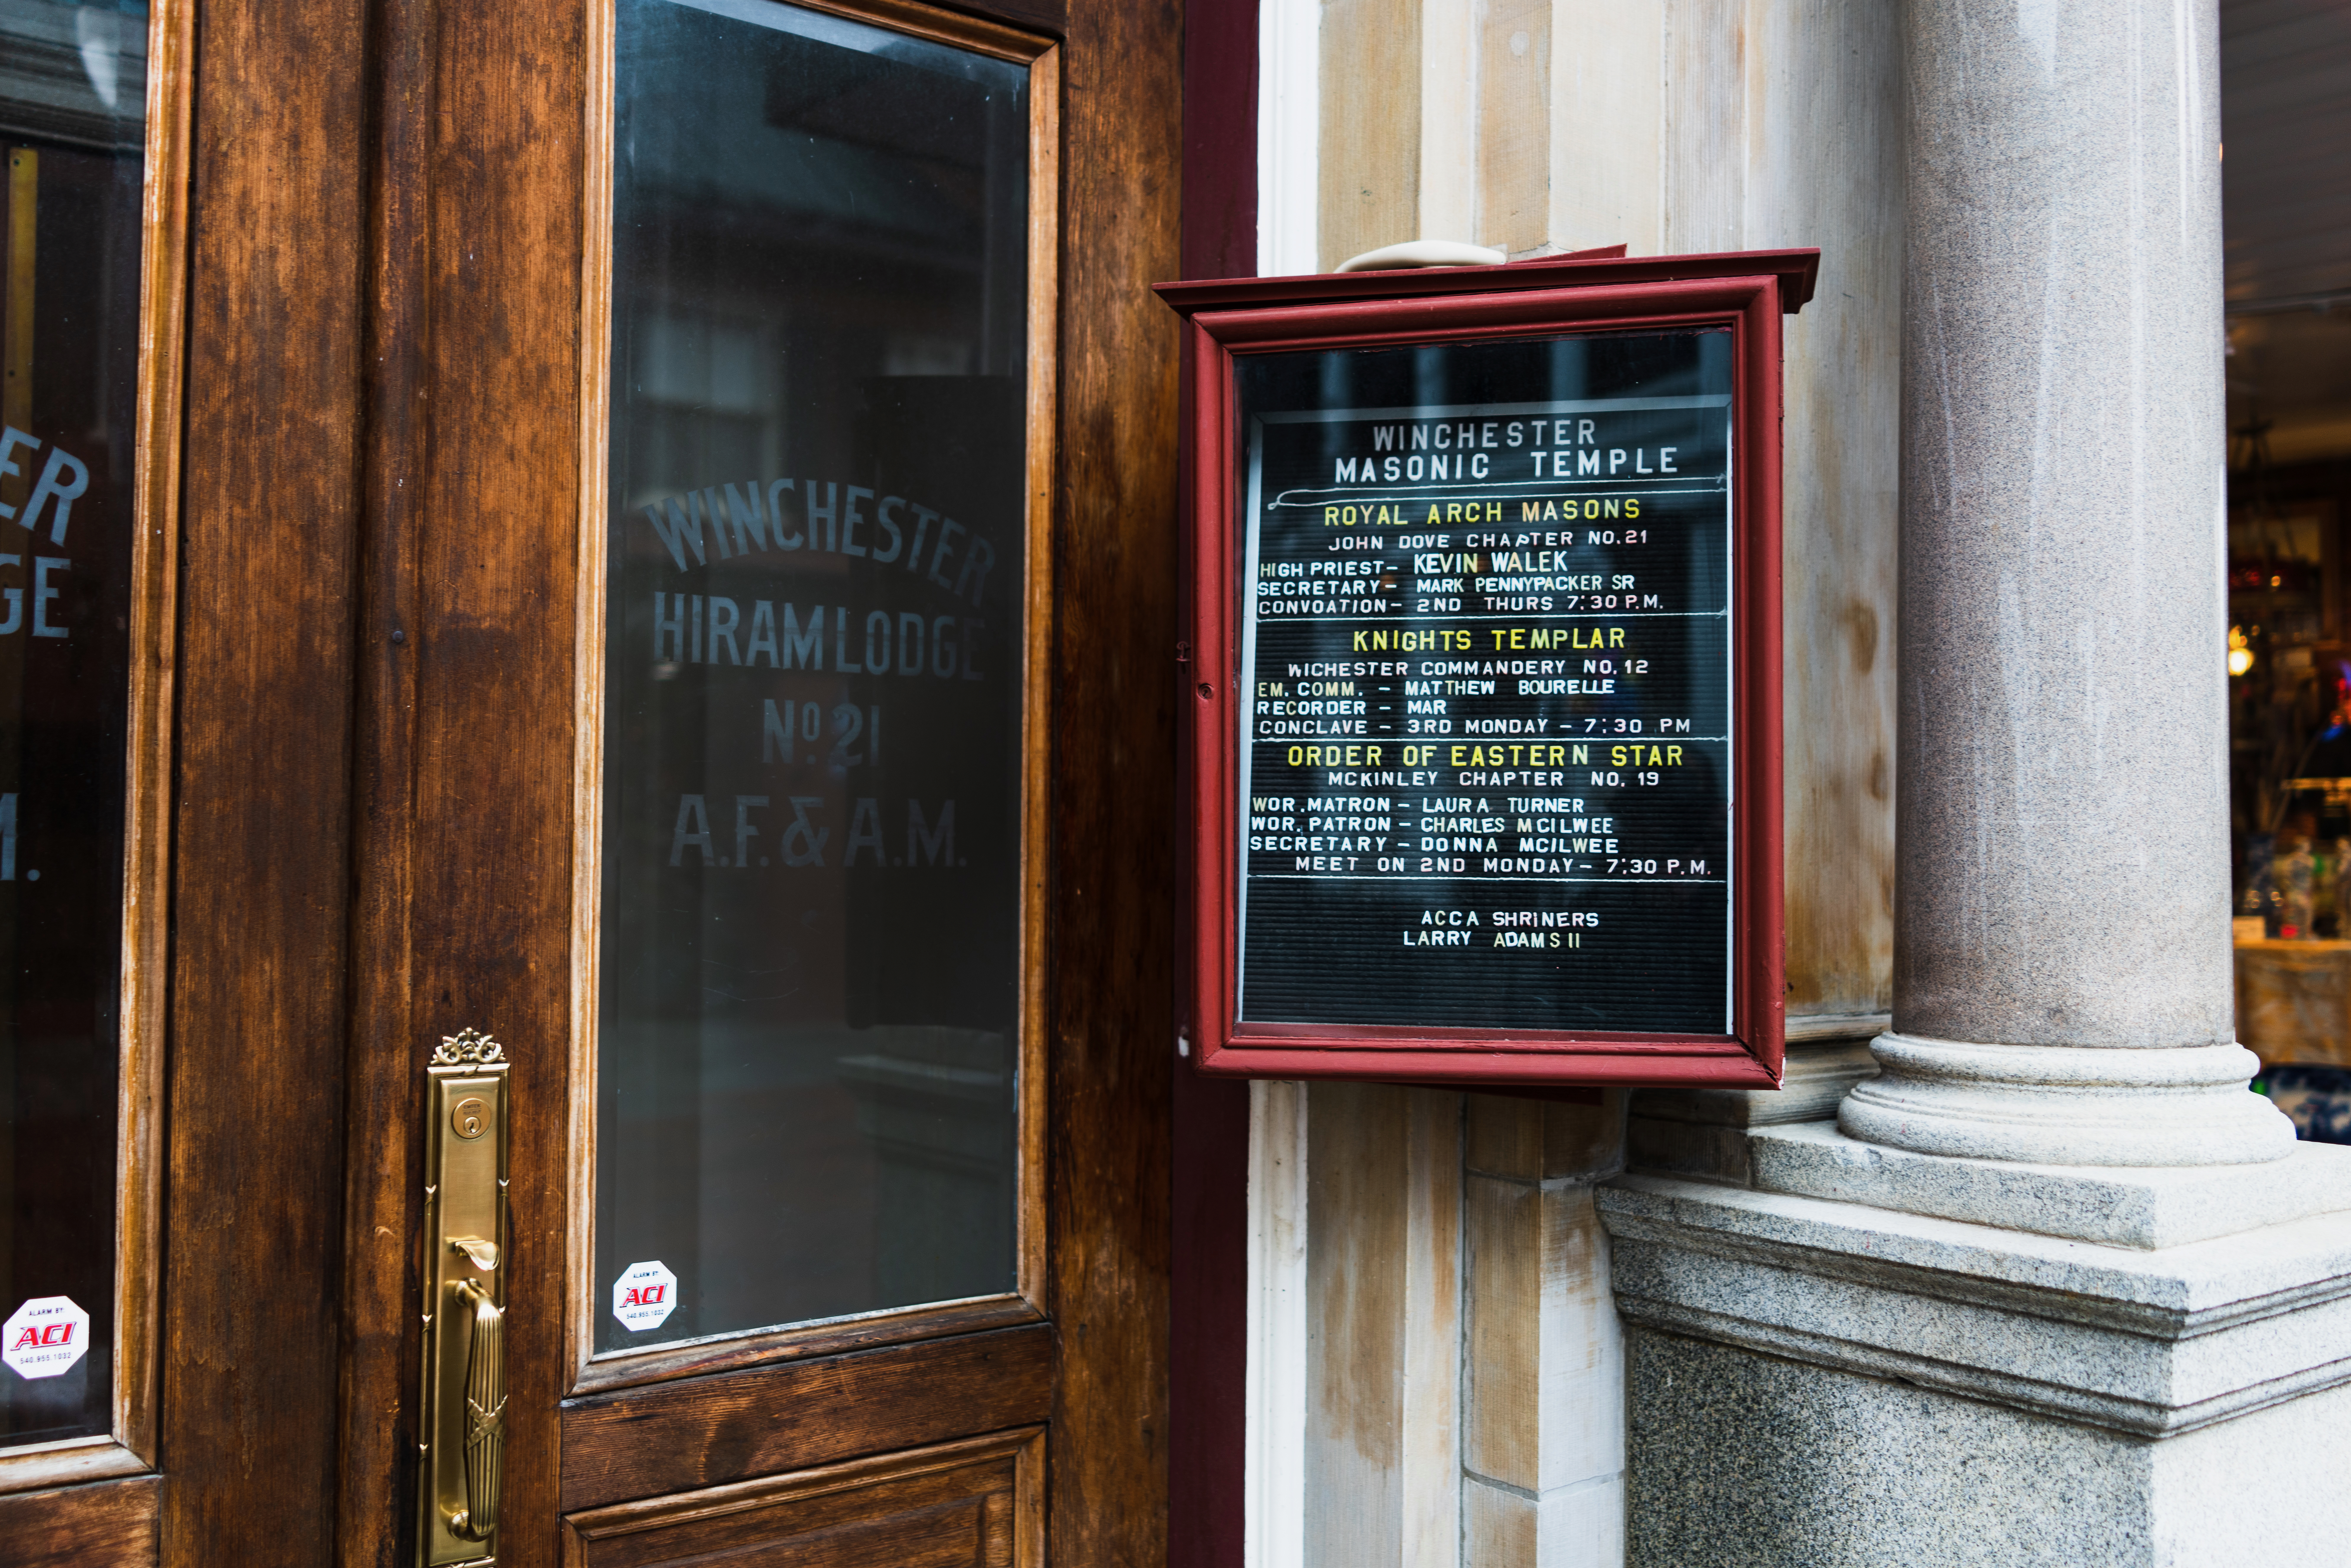 ER
GE
M.
ALARM BY:
ACI
540.955.1032
WINCHESTER
HIRAM LODGE
No. 21
A.F. & A.M.
ALARM BY:
ACI
540.955.1032
WINCHESTER
MASONIC TEMPLE
ROYAL ARCH MASONS
JOHN DOVE CHAPTER NO. 21
HIGH PRIEST- KEVIN WALEK
SECRETARY- MARK PENNYPACKER SR
CONVOATION- 2ND THURS 7:30 P.M.
KNIGHTS TEMPLAR
WICHESTER COMMANDERY NO. 12
EM. COMM. - MATTHEW BOURELLE
RECORDER - MAR
CONCLAVE - 3RD MONDAY - 7:30 PM
ORDER OF EASTERN STAR
MCKINLEY CHAPTER NO. 19
WOR. MATRON - LAURA TURNER
WOR. PATRON - CHARLES MCILWEE
SECRETARY - DONNA MCILWEE
MEET ON 2ND MONDAY - 7:30 P.M.
ACCA SHRINERS
LARRY ADAMS II